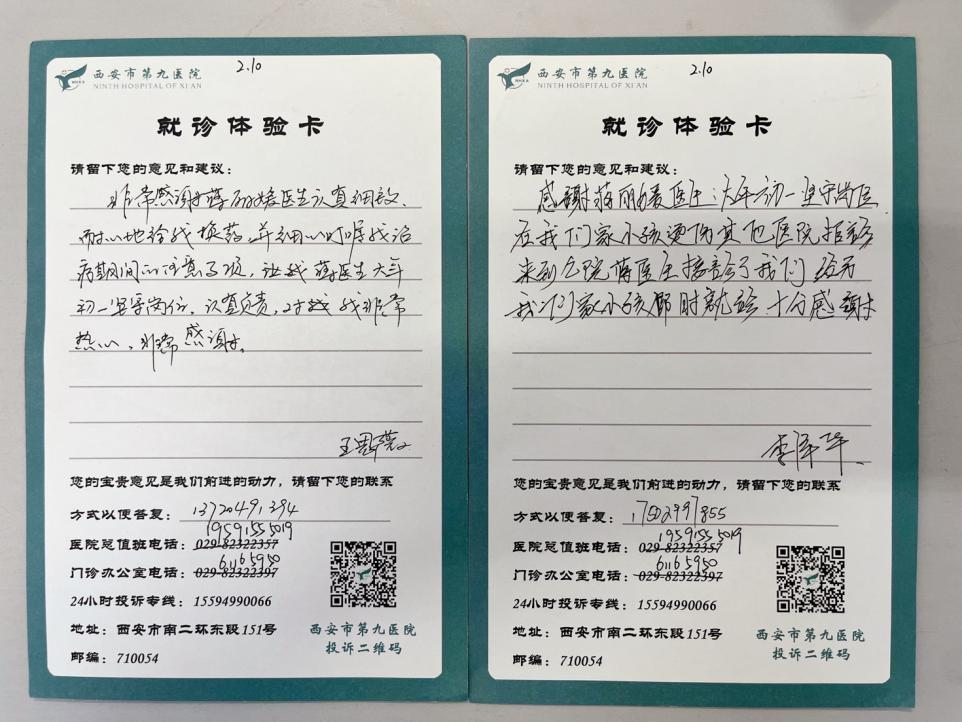 西安市第九医院
NINTH HOSPITAL OF XI AN
2.10
就诊体验卡
请留下您的意见和建议：
非常感谢蒋丽媛医生认真细致、
耐心地给我换药，并细心叮嘱我治
病期间的注意事项，让我 蒋医生大年
初一坚守岗位，认真负责，对我 我非常
热心、非常感谢。
王
您的宝贵意见是我们前进的动力，请留下您的联系
方式以便答复：13720491394
19591555019
医院总值班电话：029-82322357
61165950
门诊办公室电话：029-82322397
24小时投诉专线：15594990066
地址：西安市南二环东段151号
邮编：710054
西安市第九医院
投诉二维码
西安市第九医院
NINTH HOSPITAL OF XI AN
2.10
就诊体验卡
请留下您的意见和建议：
感谢蒋丽媛医生：大年初一坚守岗位
在我们家小孩烫伤其他医院拒诊
来到公院蒋医生接诊了我们 给予
我们家小孩即时就诊 十分感谢
李泽华
您的宝贵意见是我们前进的动力，请留下您的联系
方式以便答复：17502997855
19591555019
医院总值班电话：029-82322357
61165950
门诊办公室电话：029-82322397
24小时投诉专线：15594990066
地址：西安市南二环东段151号
邮编：710054
西安市第九医院
投诉二维码